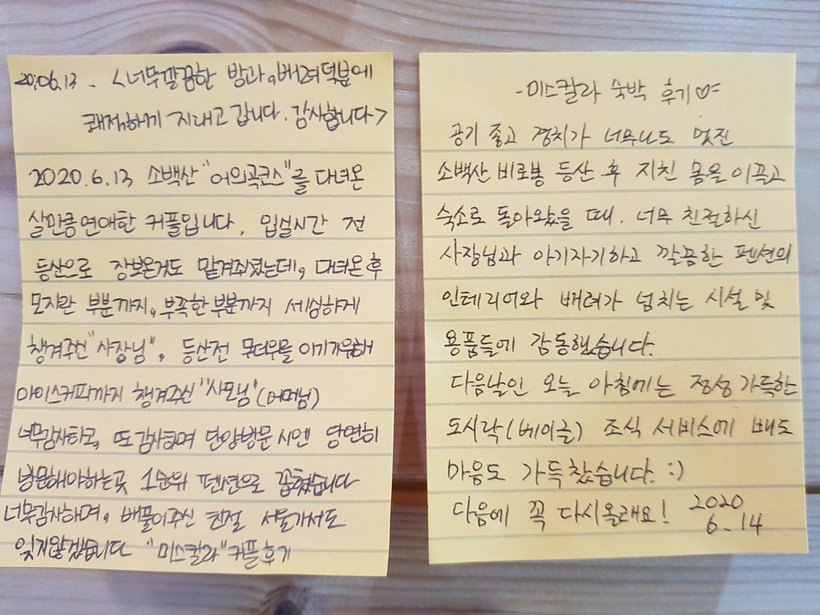 20.06.13. <너무깔끔한 방과, 배려덕분에
쾌적하게 지내고 갑니다. 감사합니다>
2020.6.13 소백산 "어의곡코스"를 다녀온
살만큼연애한 커플입니다. 입실시간 전
등산으로 장보온거도 맡겨주셨는데, 다녀온 후
모자란 부분까지, 부족한부분까지 세심하게
챙겨주신 "사장님", 등산전 무더위를 이기기위해
아이스커피까지 챙겨주신 "사모님"(어머님)
너무감사하고, 또 감사하며 단양방문 시엔 당연히
방문해야하는곳 1순위 펜션으로 꼽혔습니다
너무감사하며, 배풀어주신 친절 서울가서도
잊지않겠습니다 "미스칼라"커플후기
-미스칼라 숙박 후기♡-
공기 좋고 경치가 너무나도 멋진
소백산 비로봉 등산 후 지친 몸을 이끌고
숙소로 돌아왔을 때, 너무 친절하신
사장님과 아기자기하고 깔끔한 펜션의
인테리어와 배려가 넘치는 시설 및
용품들에 감동했습니다.
다음날인 오늘 아침에는 정성 가득한
도시락(베이글) 조식 서비스에 배도
마음도 가득찼습니다. :)
다음에 꼭 다시올래요! 2020
6.14